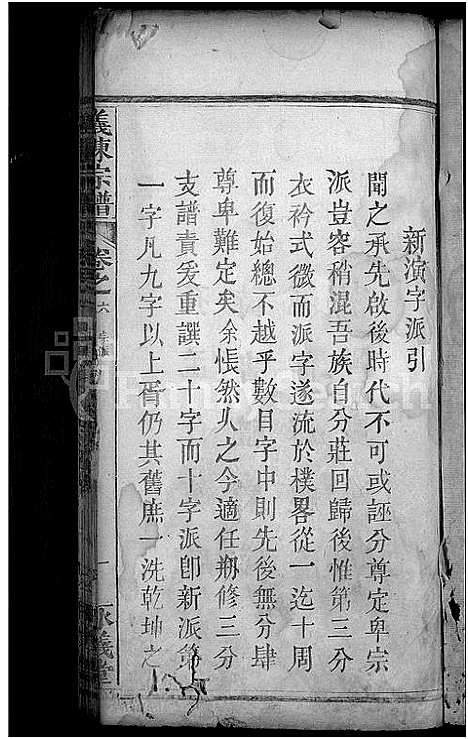 新演字派引
聞之承先啟後時代不可或誣分尊定卑宗
派豈容稍混吾族自分莊回歸後惟第三分
衣衿式微而派字遂流於樸畧從一迄十周
而復始總不越乎數目字中則先後無分肆
尊卑難定矣余悵然久之今適任刱修三分
支譜責爰重譔二十字而十字派卽新派第
一字凡九字以上胥仍其舊庶一洗乾坤之
義陳宗譜
卷之六
一
永義堂